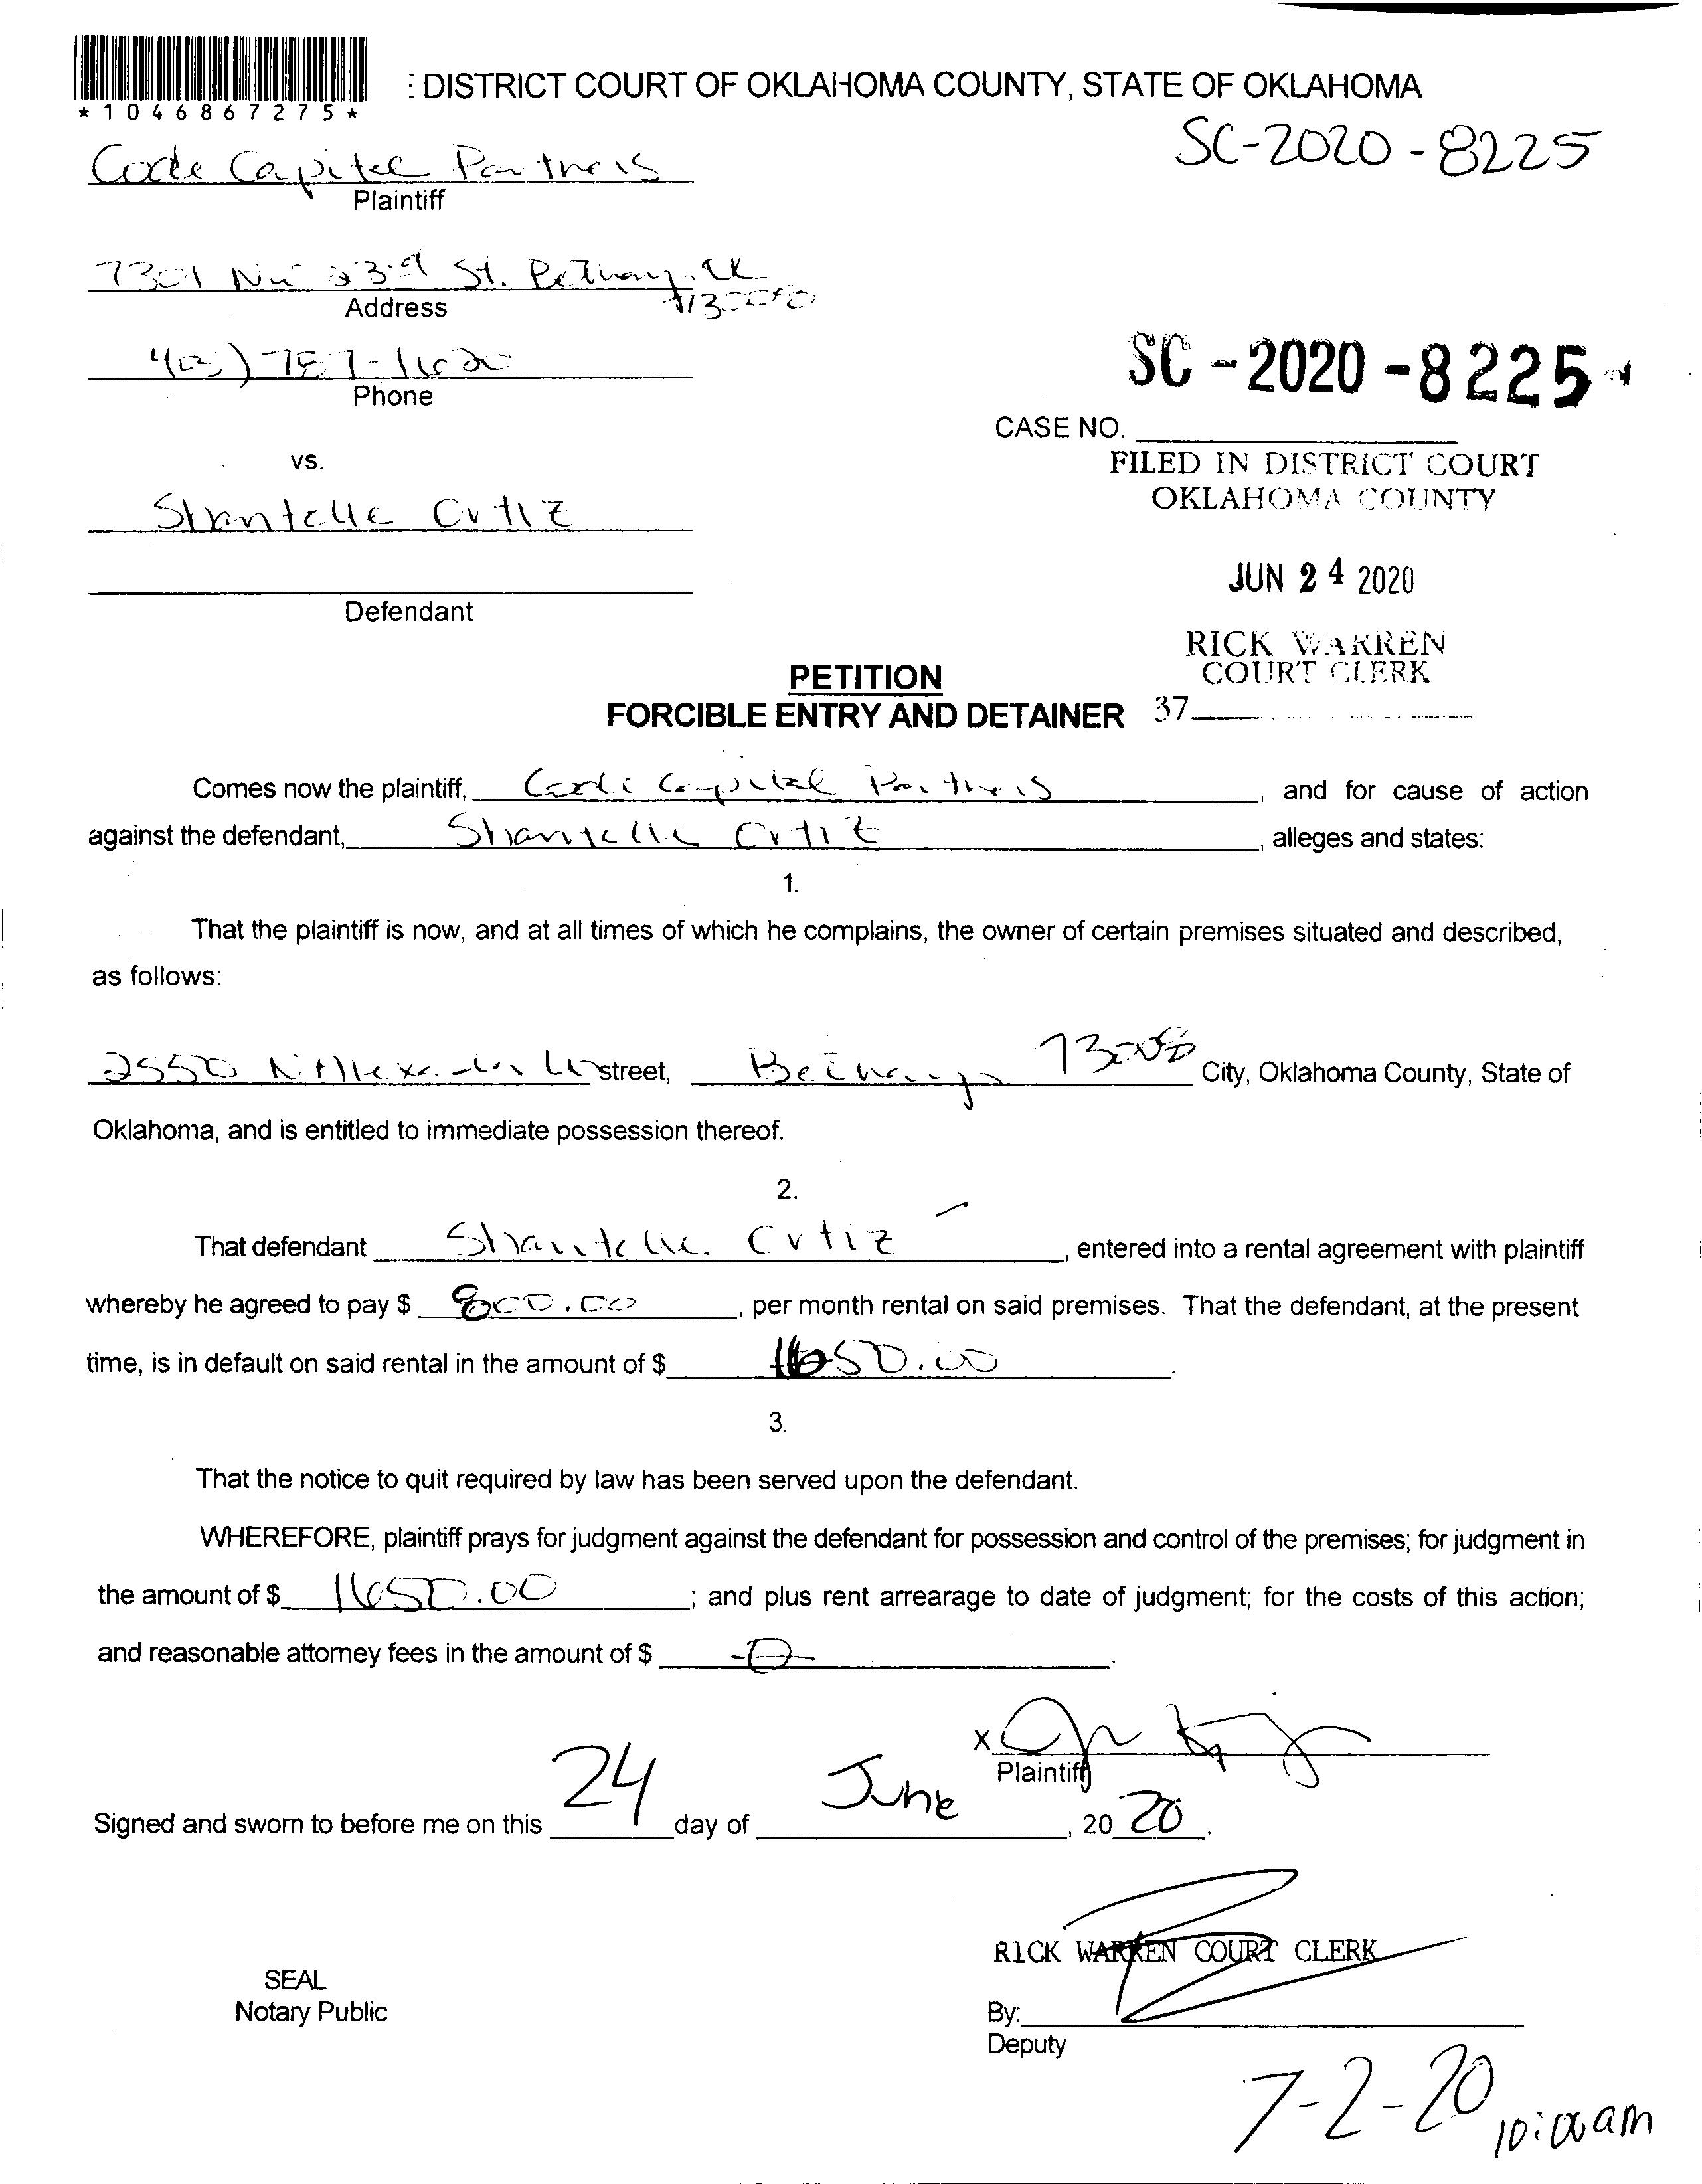 *1046867275*
: DISTRICT COURT OF OKLAHOMA COUNTY, STATE OF OKLAHOMA
SC-2020-8225
Code Capital Partners
Plaintiff
7301 NW 23rd St. Bethany, OK
73008
Address
405) 787-1620
Phone
SC-2020-8225
CASE NO.
vs.
FILED IN DISTRICT COURT
OKLAHOMA COUNTY
Shantelle Ortiz
JUN 24 2020
Defendant
RICK WARREN
COURT CLERK
PETITION
FORCIBLE ENTRY AND DETAINER 37
Comes now the plaintiff, Code Capital Partners, and for cause of action
against the defendant, Shantelle Ortiz, alleges and states:
1.
That the plaintiff is now, and at all times of which he complains, the owner of certain premises situated and described,
as follows:
2550 N Alexander Ln street, Bethany 73008 City, Oklahoma County, State of
Oklahoma, and is entitled to immediate possession thereof.
2.
That defendant Shantelle Ortiz, entered into a rental agreement with plaintiff
whereby he agreed to pay $ 800.00, per month rental on said premises. That the defendant, at the present
time, is in default on said rental in the amount of $ 1650.00.
3.
That the notice to quit required by law has been served upon the defendant.
WHEREFORE, plaintiff prays for judgment against the defendant for possession and control of the premises; for judgment in
the amount of $ 1650.00; and plus rent arrearage to date of judgment; for the costs of this action;
and reasonable attorney fees in the amount of $ -0-.
X
Plaintiff
Signed and sworn to before me on this 24 day of June, 2020.
RICK WARREN COURT CLERK
SEAL
Notary Public
By:
Deputy
7-2-20 10:00am